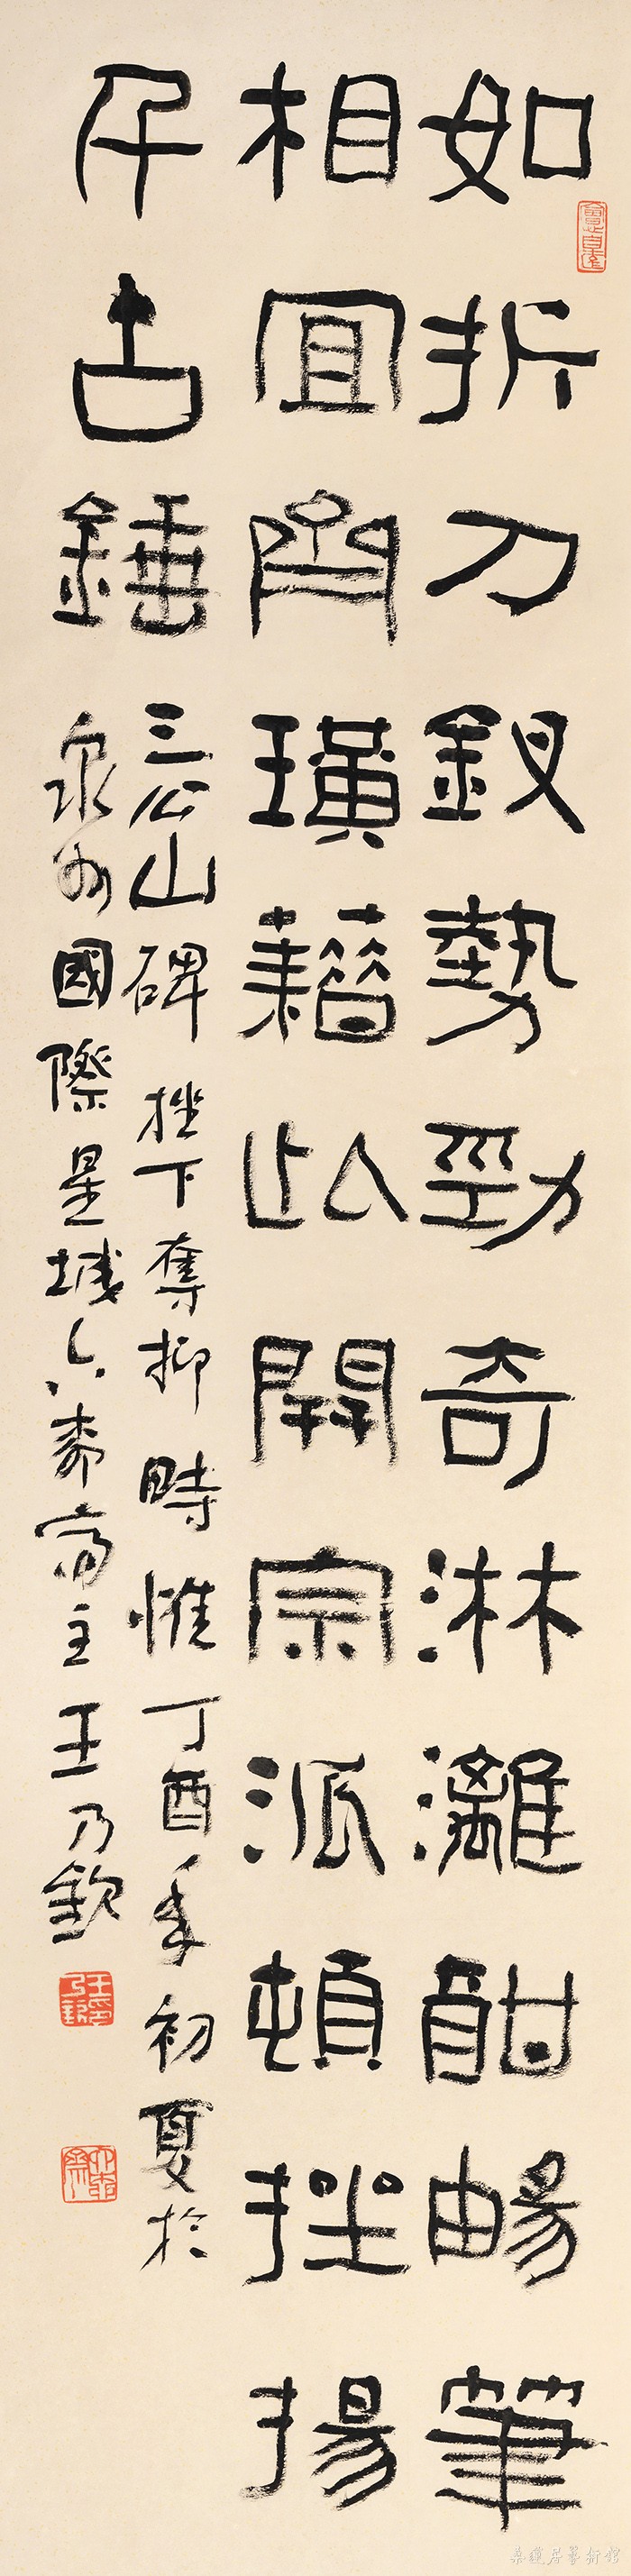 如折刀釵勢勁奇淋漓酣暢筆
相宜角璜藉此開宗派頓挫揚
千古錘
三公山碑挫下奪抑時惟丁酉年初夏於
泉州國際星城六泰齋主王乃欽